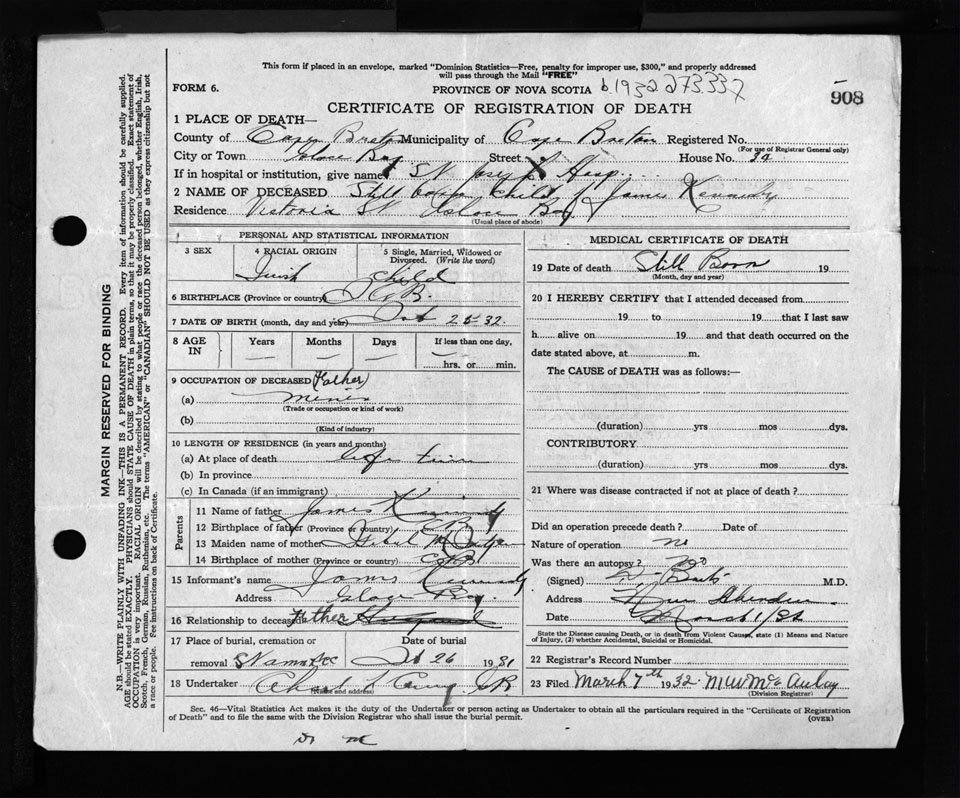 This form if placed in an envelope, marked "Dominion Statistics—Free, penalty for improper use, $300," and properly addressed
will pass through the Mail "FREE"
FORM 6.
PROVINCE OF NOVA SCOTIA b.1932 273337
908
CERTIFICATE OF REGISTRATION OF DEATH
1 PLACE OF DEATH—
County of Cape Breton Municipality of Cape Breton Registered No.
(For use of Registrar General only)
City or Town Glace Bay Street House No. 39
If in hospital or institution, give name St Joseph Hosp.
2 NAME OF DECEASED Still born child James Kennedy
Residence Victoria St Glace Bay
(Usual place of abode)
PERSONAL AND STATISTICAL INFORMATION
3 SEX 4 RACIAL ORIGIN 5 Single, Married, Widowed or
Divorced. (Write the word)
Irish child
6 BIRTHPLACE (Province or country) C.B.
7 DATE OF BIRTH (month, day and year) Feb 25 32
8 AGE IN Years Months Days If less than one day,
hrs. or min.
9 OCCUPATION OF DECEASED (Father)
(a) miner
(Trade or occupation or kind of work)
(b)
(Kind of industry)
10 LENGTH OF RESIDENCE (in years and months)
(a) At place of death life time
(b) In province
(c) In Canada (if an immigrant)
Parents
11 Name of father James Kennedy
12 Birthplace of father (Province or country) C B
13 Maiden name of mother
14 Birthplace of mother (Province or country) C.B
15 Informant's name James Kennedy
Address Glace Bay
16 Relationship to deceased Father
17 Place of burial, cremation or Date of burial
removal Feb 26 1931
18 Undertaker
(Name and address)
MEDICAL CERTIFICATE OF DEATH
19 Date of death Still Born 19
(Month, day and year)
20 I HEREBY CERTIFY that I attended deceased from
19 to 19 that I last saw
h alive on 19 and that death occurred on the
date stated above, at m.
The CAUSE of DEATH was as follows:—
(duration) yrs mos dys.
CONTRIBUTORY
(duration) yrs mos dys.
21 Where was disease contracted if not at place of death?
Did an operation precede death? Date of
Nature of operation no
Was there an autopsy? No
(Signed) M.D.
Address New Aberdeen
Date March 1/32
State the Disease causing Death, or in death from Violent Causes, state (1) Means and Nature
of Injury, (2) whether Accidental, Suicidal or Homicidal.
22 Registrar's Record Number
23 Filed March 7th 1932 M W McAulay
(Division Registrar)
Sec. 46—Vital Statistics Act makes it the duty of the Undertaker or person acting as Undertaker to obtain all the particulars required in the "Certificate of Registration
of Death" and to file the same with the Division Registrar who shall issue the burial permit.
(OVER)
MARGIN RESERVED FOR BINDING
N.B.—WRITE PLAINLY WITH UNFADING INK—THIS IS A PERMANENT RECORD. Every item of information should be carefully supplied.
AGE should be stated EXACTLY. PHYSICIANS should STATE CAUSE OF DEATH in plain terms, so that it may be properly classified. Exact statement of
OCCUPATION is very important. RACIAL ORIGIN will be described by stating to what people or race the deceased person belonged, whether English, Irish,
Scotch, French, German, Russian, Ruthenian, etc. The terms "AMERICAN" or "CANADIAN" SHOULD NOT BE USED as they express citizenship but not
a race or people. See instructions on back of Certificate.